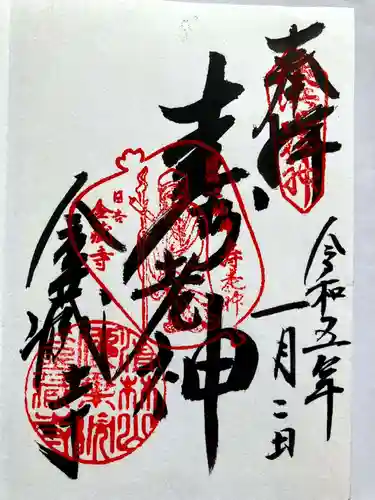 奉拝
令和五年
一月二日
寿老神
金蔵寺
日吉
金蔵寺
寿老神